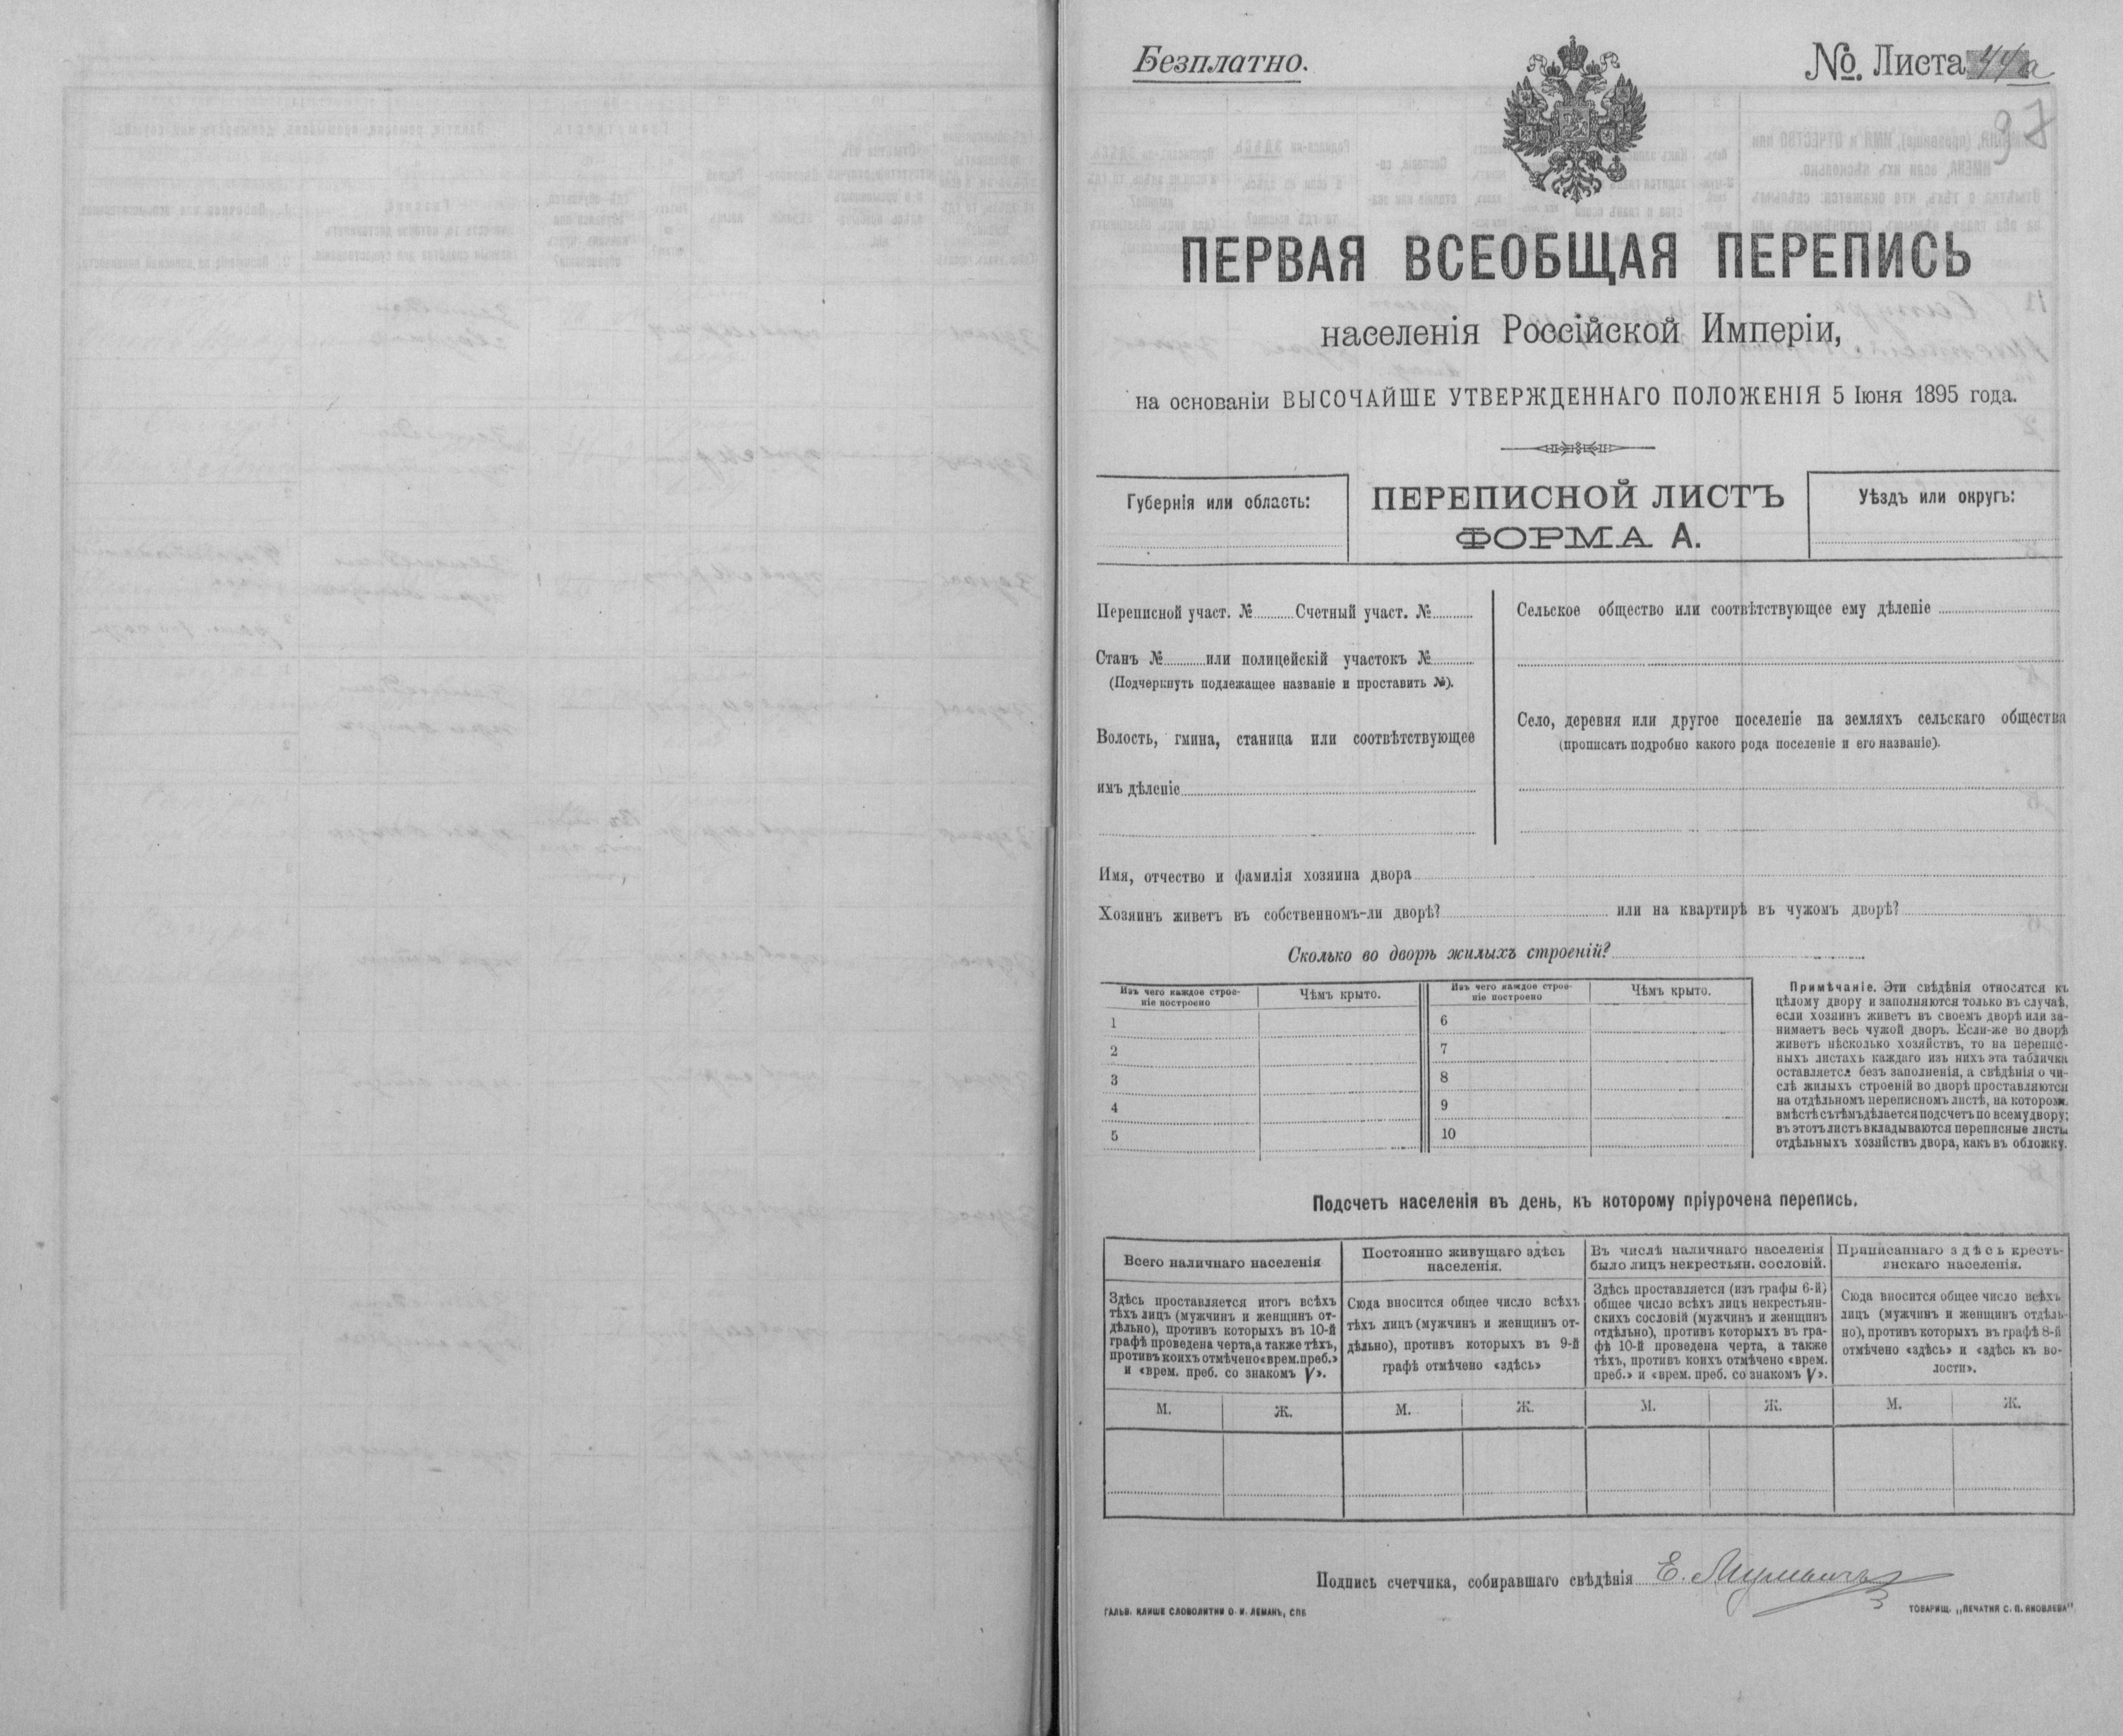 Безплатно.
№. Листа 44а
97
ПЕРВАЯ ВСЕОБЩАЯ ПЕРЕПИСЬ
населенія Россійской Имперіи,
на основаніи ВЫСОЧАЙШЕ УТВЕРЖДЕННАГО ПОЛОЖЕНІЯ 5 Іюня 1895 года.
Губернія или область:
ПЕРЕПИСНОЙ ЛИСТЪ
ФОРМА А.
Уѣздъ или округъ:
Переписной участ. № Счетный участ. №
Станъ № или полицейскій участокъ №
(Подчеркнуть подлежащее названіе и проставить №).
Волость, гмина, станица или соотвѣтствующее
имъ дѣленіе
Сельское общество или соотвѣтствующее ему дѣленіе
Село, деревня или другое поселеніе на земляхъ сельскаго общества
(прописать подробно какого рода поселеніе и его названіе).
Имя, отчество и фамилія хозяина двора
Хозяинъ живетъ въ собственномъ-ли дворѣ? или на квартирѣ въ чужомъ дворѣ?
Сколько во дворѣ жилыхъ строеній?
Изъ чего каждое строе-
ніе построено
Чѣмъ крыто.
Изъ чего каждое строе-
ніе построено
Чѣмъ крыто.
1
6
2
7
3
8
4
9
5
10
Примѣчаніе. Эти свѣдѣнія относятся къ
цѣлому двору и заполняются только въ случаѣ,
если хозяинъ живетъ въ своемъ дворѣ или за-
нимаетъ весь чужой дворъ. Если-же во дворѣ
живетъ нѣсколько хозяйствъ, то на перепис-
ныхъ листахъ каждаго изъ нихъ эта табличка
оставляется безъ заполненія, а свѣдѣнія о чи-
слѣ жилыхъ строеній во дворѣ проставляются
на отдѣльномъ переписномъ листѣ, на которомъ
вмѣстѣ съ тѣмъ дѣлается подсчетъ по всему двору;
въ этотъ листъ вкладываются переписные листы
отдѣльныхъ хозяйствъ двора, какъ въ обложку.
Подсчетъ населенія въ день, къ которому пріурочена перепись.
Всего наличнаго населенія
Здѣсь проставляется итогъ всѣхъ
тѣхъ лицъ (мужчинъ и женщинъ от-
дѣльно), противъ которыхъ въ 10-й
графѣ проведена черта, а также тѣхъ,
противъ коихъ отмѣчено «врем. преб.»
и «врем. преб. со знакомъ V».
Постоянно живущаго здѣсь
населенія.
Сюда вносится общее число всѣхъ
тѣхъ лицъ (мужчинъ и женщинъ от-
дѣльно), противъ которыхъ въ 9-й
графѣ отмѣчено «здѣсь»
Въ числѣ наличнаго населенія
было лицъ некрестьян. сословій.
Здѣсь проставляется (изъ графы 6-й)
общее число всѣхъ лицъ некрестьян-
скихъ сословій (мужчинъ и женщинъ
отдѣльно), противъ которыхъ въ гра-
фѣ 10-й проведена черта, а также
тѣхъ, противъ коихъ отмѣчено «врем.
преб.» и «врем. преб. со знакомъ V».
Приписаннаго здѣсь кресть-
янскаго населенія.
Сюда вносится общее число всѣхъ
лицъ (мужчинъ и женщинъ отдѣль-
но), противъ которыхъ въ графѣ 8-й
отмѣчено «здѣсь» и «здѣсь къ во-
лости».
М. Ж. М. Ж. М. Ж. М. Ж.
Подпись счетчика, собиравшаго свѣдѣнія Е.
ГАЛЬВ. КЛИШЕ СЛОВОЛИТНИ О. И. ЛЕМАНЪ, СПБ
ТОВАРИЩ. „ПЕЧАТНЯ С. П. ЯКОВЛЕВА"